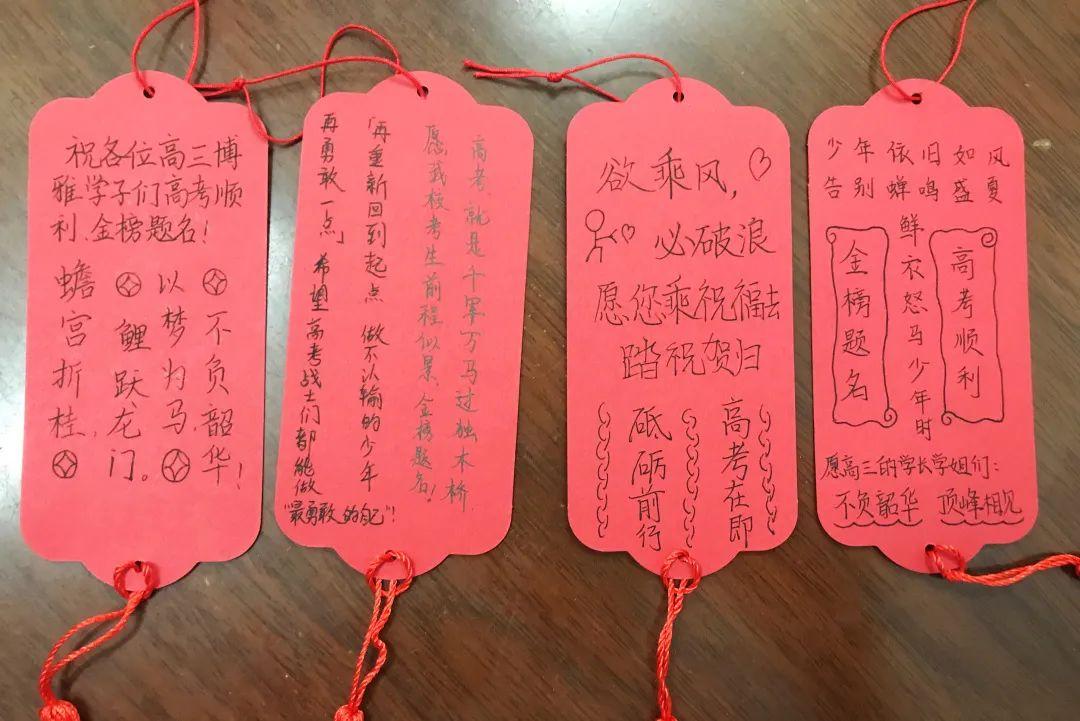 祝各位高三博
雅学子们高考顺
利、金榜题名!
蟾宫折桂,
鲤跃龙门。
以梦为马,
不负韶华!
高考,就是千军万马过独木桥
愿我校考生前程似景,金榜题名!
「再重新回到起点 做不认输的少年
再勇敢一点」 希望高考战士们都能做
“最勇敢的自己”!
欲乘风,
必破浪
愿您乘祝福去
踏祝贺归
高考在即
砥砺前行
少年依旧如风
告别蝉鸣盛夏
高考顺利
鲜衣怒马少年时
金榜题名
愿高三的学长学姐们:
不负韶华 顶峰相见